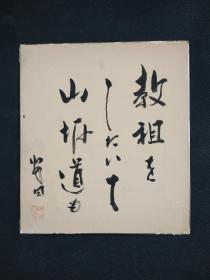 教祖を
したいて
山坂道も